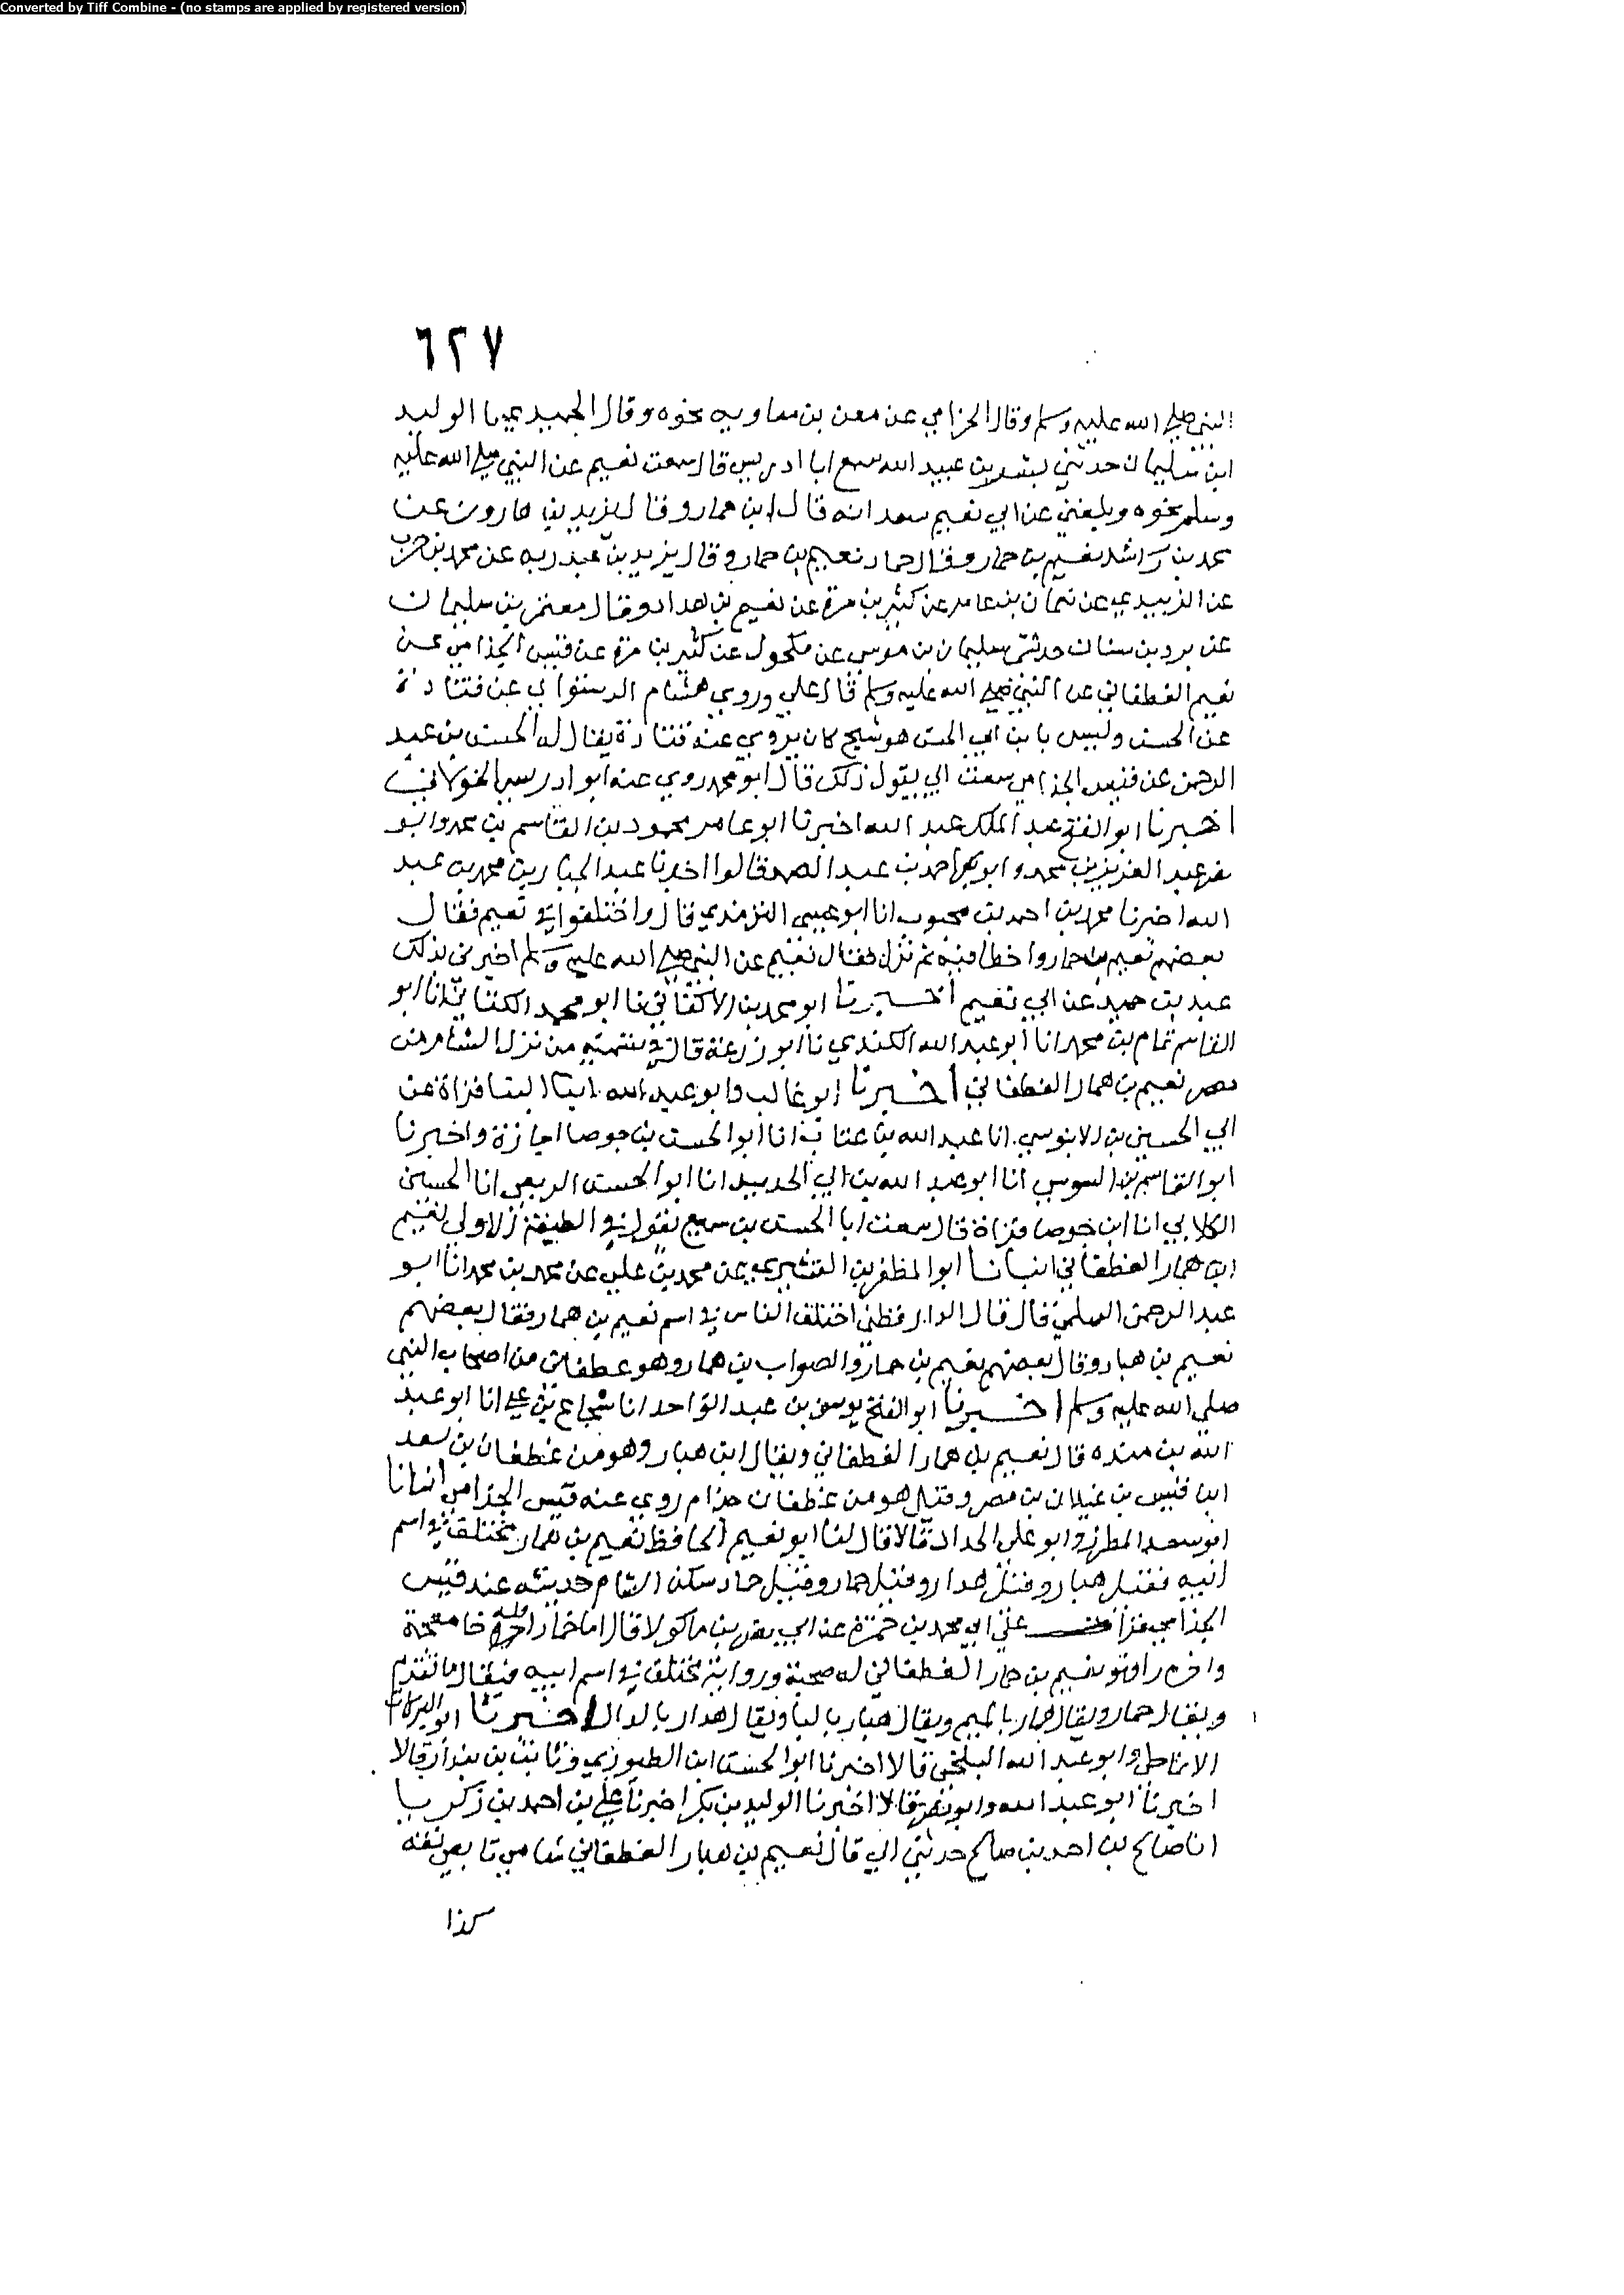 Converted by Tiff Combine - (no stamps are applied by registered version)
٦٢٧
النبي صلى الله عليه وسلم وقال الحزامي عن معن بن معاويه نحوه وقال الحميدي نا الوليد
ابن سليمان حدثني بشر بن عبيد الله سمع ابا ادريس قال سمعت نعيم عن النبي صلى الله عليه
وسلم نحوه وبلغني عن ابي نعيم سعد انه قال ابن همار وقال يزيد بن هارون عن
محمد بن راشد نعيم بن خمار وقال حماد نعيم بن حمار وقال يزيد بن عبد ربه عن محمد بن حرب
عن الزبيدي عن بن عامر عن كثير بن مرة عن نعيم بن هدار وقال معتمر بن سليمان
عن برد بن سنان حدثني سليمان بن موسى عن مكحول عن كثير بن مرة عن قيس الجذامي عن
نعيم الغطفاني عن النبي صلى الله عليه وسلم قال علي وروى هشام الدستوائي عن قتادة
عن الحسن وليس بابن ابي الحسن هو شيخ كان يروي عنه قتادة يقال له الحسن بن عبد
الرحمن عن قيس الجذامي سمعت ابي يقول ذلك قال ابو محمد روى عنه ابو ادريس الخولاني
اخبرنا ابو الفتح عبد الملك عبد الله اخبرنا ابو عامر محمود بن القاسم بن محمد وابو
نصر عبد العزيز بن محمد وابو بكر احمد بن عبد الصمد قالوا اخبرنا عبد الجبار بن محمد بن عبد
الله اخبرنا محمد بن احمد بن محبوب انا ابو عيسى الترمذي قال واختلفوا في نعيم فقال
بعضهم نعيم بن حمار واخطا فيه ثم نزل فقال نعيم عن النبي صلى الله عليه وسلم اخبرني بذلك
عبد بن حميد عن ابي نعيم اخبرنا ابو محمد بن الاكفاني نا ابو محمد الكتاني انا ابو
القاسم تمام بن محمد انا ابو عبد الله الكندي نا ابو زرعة قال في تسمية من نزل الشام من
مضر نعيم بن همار الغطفاني اخبرنا ابو غالب وابو عبد الله ابنا البنا قراة عن
ابي الحسين بن الابنوسي انا عبد الله بن عتاب انا ابو الحسن بن جوصا اجازة واخبرنا
ابو القاسم بن السوسي انا ابو عبد الله بن ابي الحديد انا ابو الحسن الربعي انا الحسين
الكلابي انا ابن جوصا قراة قال سمعت ابا الحسن بن سميع يقول في الطبقة الاولى نعيم
ابن همار الغطفاني انبانا ابو المظفر بن القشيري عن محمد بن علي عن محمد بن محمد انا ابو
عبد الرحمن السلمي قال قال الدارقطني اختلف الناس في اسم نعيم بن همار فقال بعضهم
نعيم بن هبار وقال بعضهم نعيم بن حمار والصواب بن همار وهو غطفاني من اصحاب النبي
صلى الله عليه وسلم اخبرنا ابو الفتح يوسف بن عبد الواحد انا شجاع بن علي انا ابو عبد
الله بن منده قال نعيم بن همار الغطفاني ويقال ابن هبار وهو من غطفان بن سعد
ابن قيس بن غيلان بن مضر وقيل هو من غطفان جذام روى عنه قيس الجذامي انبانا
ابو سعد المطرز وابو علي الحداد قالا قال لنا ابو نعيم الحافظ نعيم بن همار مختلف في اسم
ابيه فقيل هبار وقيل هدار وقيل همار وقيل حمار سكن الشام حديثه عند قيس
الجذامي قرات على ابي محمد بن حمزة عن ابي نصر بن ماكولا قال اما خمار اوله خا معجمة
واخره را فهو نعيم بن خمار الغطفاني له صحبة ورواية مختلف في اسم ابيه فيقال ما تقدم
ويقال حمار ويقال همار بالميم ويقال هبار بالبا ويقال هدار بالدال اخبرنا ابو البركات
الانماطي وابو عبد الله البلخي قالا اخبرنا ابو الحسن ابن الطيوري وثابت بن بندار قالا
اخبرنا ابو عبد الله وابو نصر قالا اخبرنا الوليد بن بكر اخبرنا علي بن احمد بن زكريا
انا صالح بن احمد بن صالح حدثني ابي قال نعيم بن هبار الغطفاني شامي تابعي ثقه
كذا